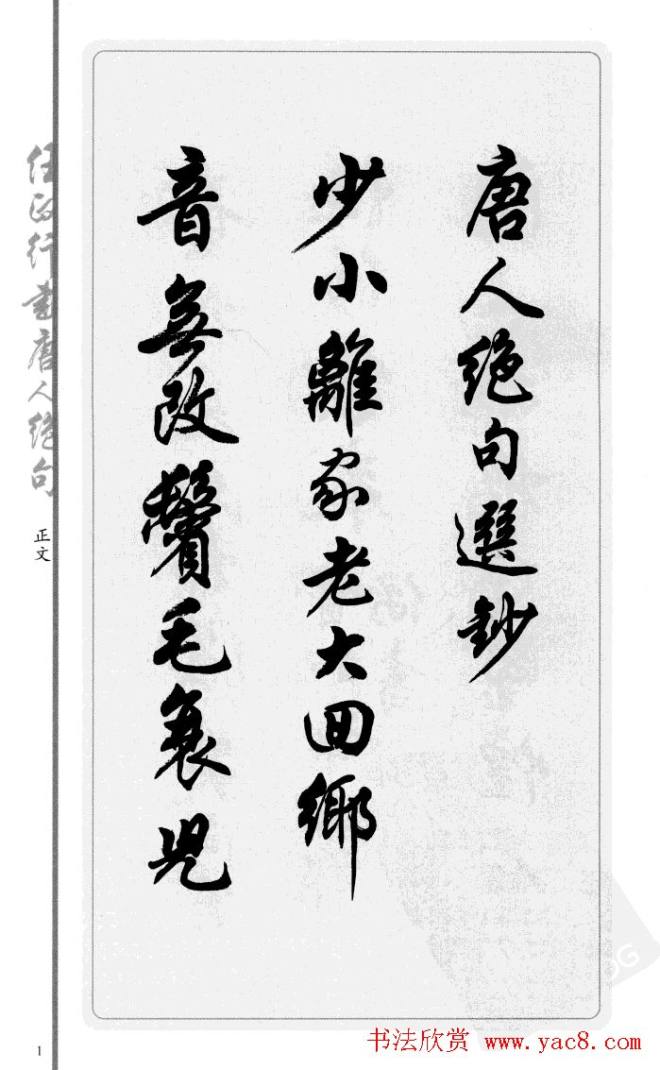 唐人绝句選鈔
少小離家老大回鄉
音無改鬢毛衰児
任政行書唐人绝句
正文
1
书法欣赏 www.yac8.com